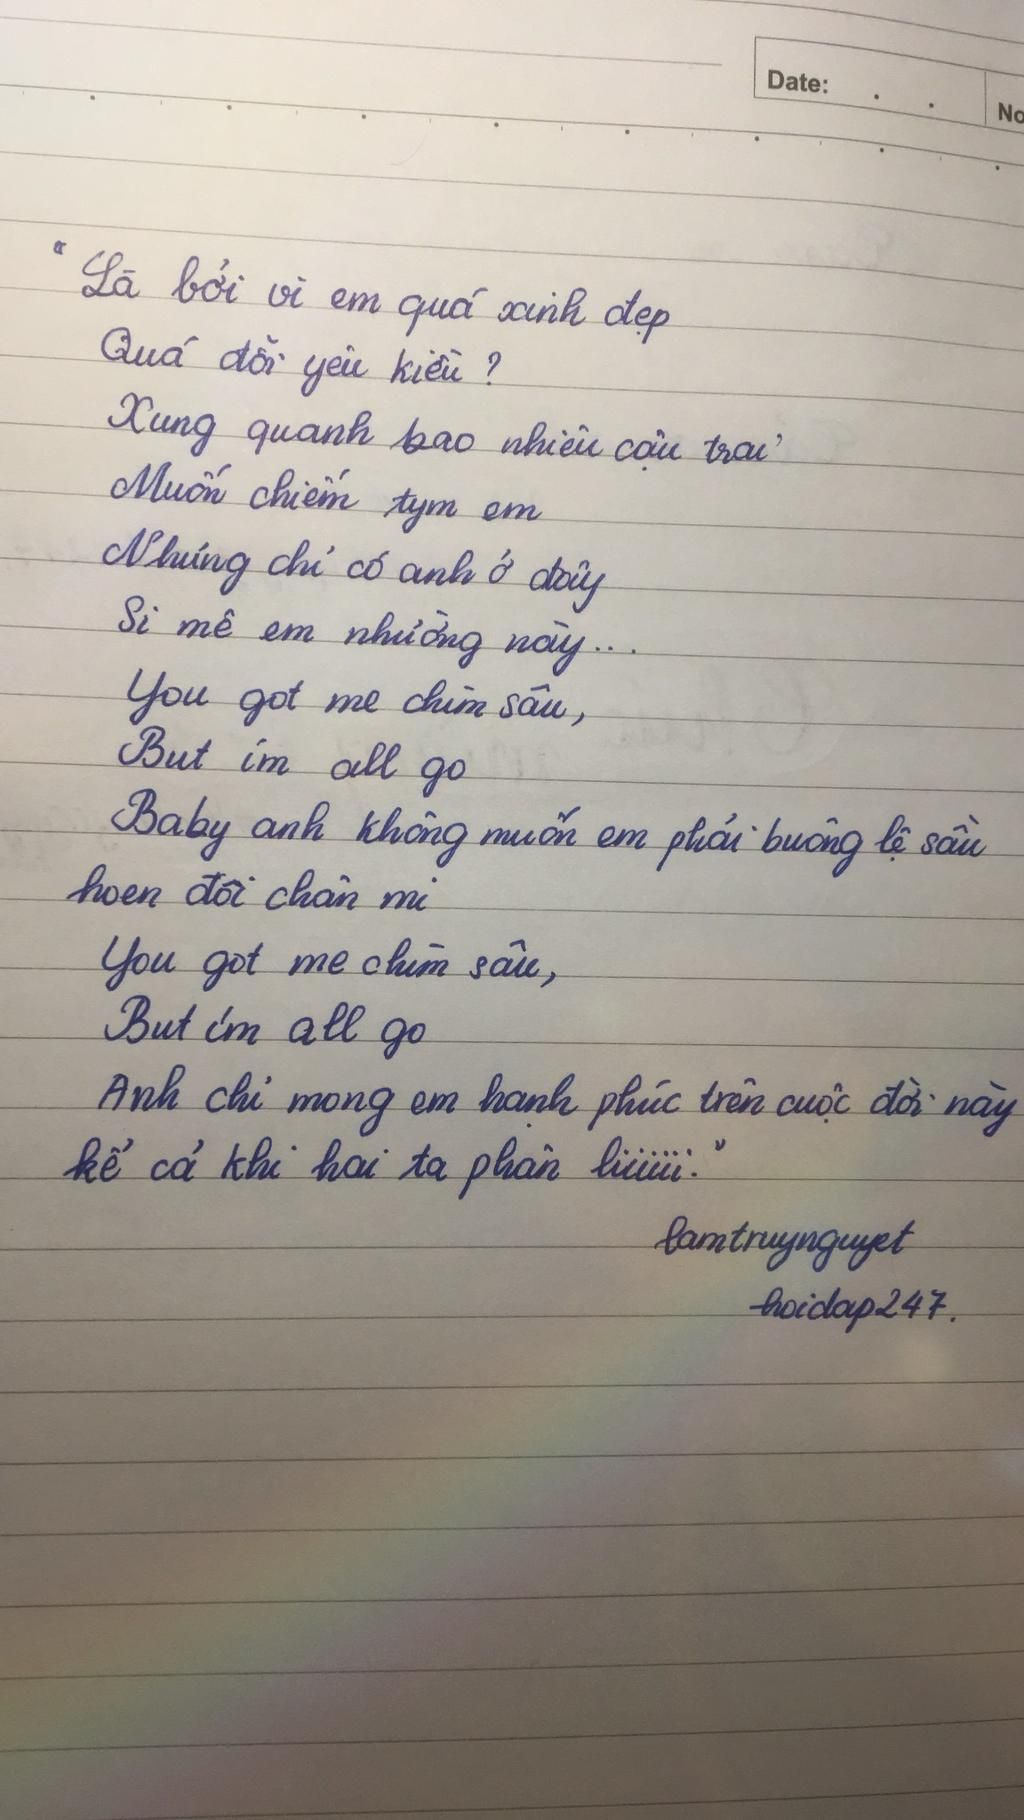 Date:
No
"Là bởi vì em quá xinh đẹp
Quá đỗi yêu kiều?
Xung quanh bao nhiêu cậu trai
Muốn chiếm tym em
Nhưng chỉ có anh ở đây
Si mê em nhường này...
You got me chìm sâu,
But im all go
Baby anh không muốn em phải buông lệ sầu
hoen đôi chân mi
You got me chìm sâu,
But i'm all go
Anh chỉ mong em hạnh phúc trên cuộc đời này
kể cả khi hai ta phân liiiiii."
lamtruynguyet
hoidap247.